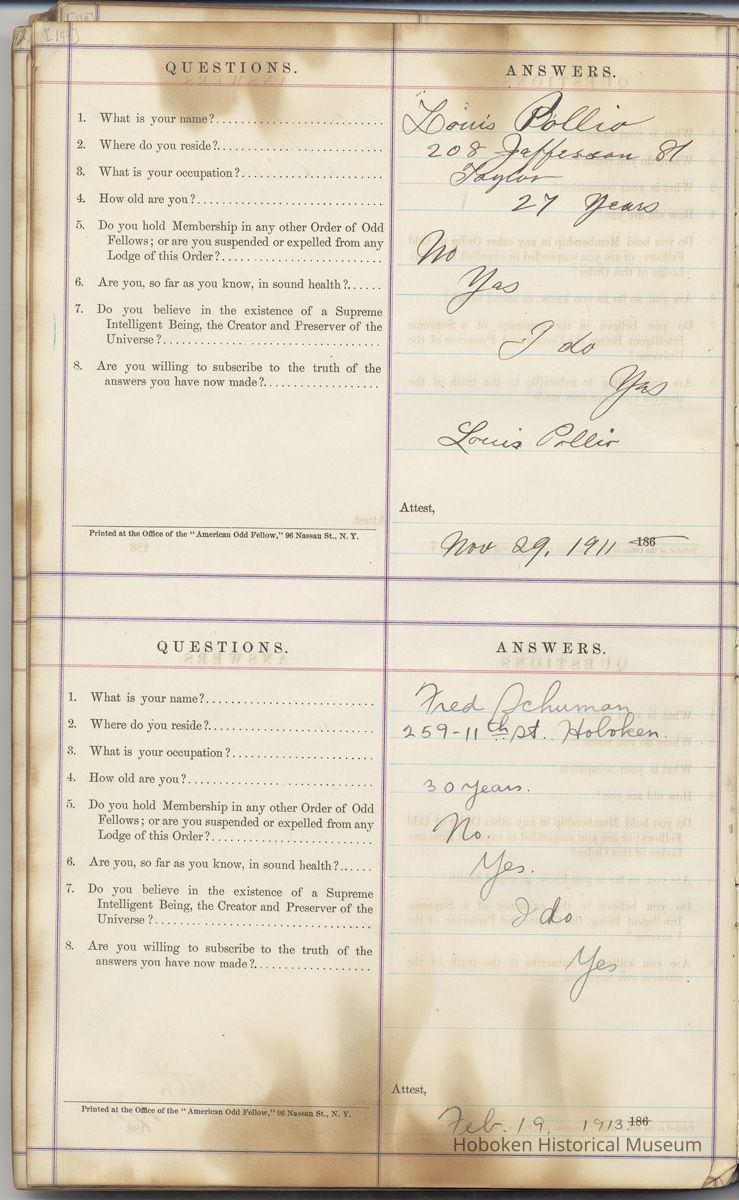 QUESTIONS.
1. What is your name?
2. Where do you reside?
3. What is your occupation?
4. How old are you?
5. Do you hold Membership in any other Order of Odd
Fellows; or are you suspended or expelled from any
Lodge of this Order?
6. Are you, so far as you know, in sound health?
7. Do you believe in the existence of a Supreme
Intelligent Being, the Creator and Preserver of the
Universe?
8. Are you willing to subscribe to the truth of the
answers you have now made?
Printed at the Office of the "American Odd Fellow," 96 Nassau St., N. Y.
ANSWERS.
Louis Pollio
208 Jafferson St
Taylor
27 Years
No
Yas
I do
Yas
Louis Pollio
Attest,
Nov 29, 1911 186
QUESTIONS.
1. What is your name?
2. Where do you reside?
3. What is your occupation?
4. How old are you?
5. Do you hold Membership in any other Order of Odd
Fellows; or are you suspended or expelled from any
Lodge of this Order?
6. Are you, so far as you know, in sound health?
7. Do you believe in the existence of a Supreme
Intelligent Being, the Creator and Preserver of the
Universe?
8. Are you willing to subscribe to the truth of the
answers you have now made?
Printed at the Office of the "American Odd Fellow," 96 Nassau St., N. Y.
ANSWERS.
Fred Schuman
259-11th St. Hoboken.
30 years.
No.
Yes.
I do
Yes
Attest,
Feb. 19, 1913. 186
Hoboken Historical Museum